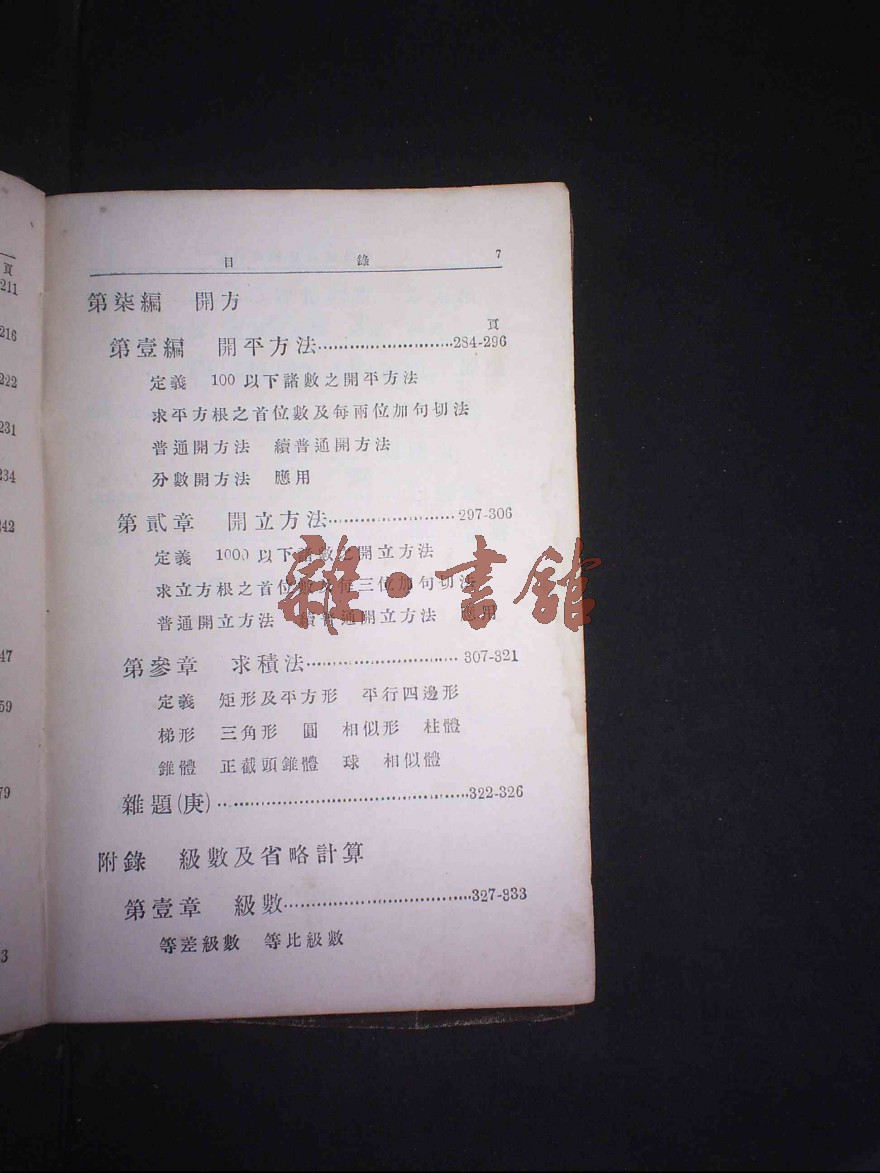 頁
211
216
222
231
234
242
47
59
79
3
目 錄 7
第柒編 開方
頁
第壹編 開平方法……………………284-296
定義 100以下諸數之開平方法
求平方根之首位數及每兩位加句切法
普通開方法 續普通開方法
分數開方法 應用
第貳章 開立方法…………………297-306
定義 1000以下諸數之開立方法
求立方根之首位數及每三位加句切法
普通開立方法 續普通開立方法 應用
雜·書館
第參章 求積法……………………307-321
定義 矩形及平方形 平行四邊形
梯形 三角形 圓 相似形 柱體
錐體 正截頭錐體 球 相似體
雜題(庚)……………………………322-326
附錄 級數及省略計算
第壹章 級數…………………………327-333
等差級數 等比級數